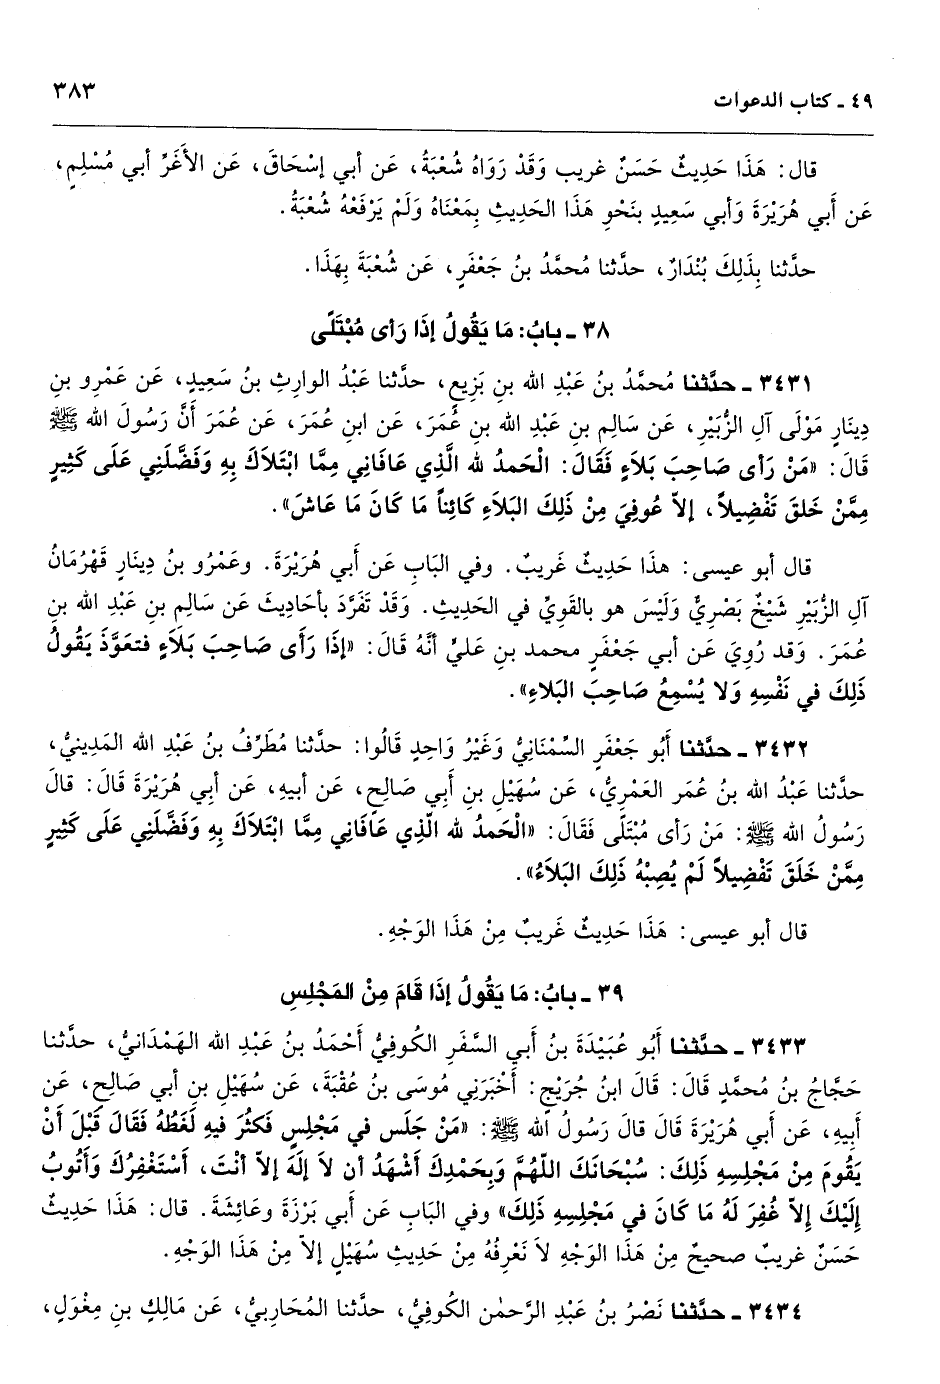 ٤٩ ـ كتاب الدعوات
٣٨٣
قال: هَذَا حَدِيثٌ حَسَنٌ غريب وَقَدْ رَوَاهُ شُعْبَةُ، عَن أبي إسْحَاقَ، عَن الأَغَرِّ أبي مُسْلِمٍ،
عَن أَبي هُرَيْرَةَ وَأبي سَعِيدٍ بنَحْوِ هَذَا الحَدِيثِ بِمَعْنَاهُ وَلَمْ يَرْفَعْهُ شُعْبَةُ.
حدَّثنا بِذَلِكَ بُنْدَارٌ، حدَّثنا مُحمَّدُ بنُ جَعْفَرٍ، عَن شُعْبَةَ بِهَذَا.
٣٨ ـ بابُ: مَا يَقُولُ إذَا رَأى مُبْتَلًى
٣٤٣١ ـ حدَّثنا مُحمَّدُ بنُ عَبْدِ الله بنِ بَزِيعٍ، حدَّثنا عَبْدُ الوارِثِ بنُ سَعِيدٍ، عَن عَمْرِو بنِ
دِينَارٍ مَوْلَى آلِ الزُّبَيْرِ، عَن سَالِمِ بنِ عَبْدِ الله بنِ عُمَرَ، عَن ابنِ عُمَرَ، عَن عُمَرَ أنَّ رَسُولَ الله ﷺ
قَالَ: «مَنْ رَأى صَاحِبَ بَلاَءٍ فَقَالَ: الْحَمدُ لله الَّذِي عَافَانِي مِمَّا ابْتَلاَكَ بِهِ وَفَضَّلَنِي عَلَى كَثِيرٍ
مِمَّنْ خَلقَ تَفْضِيلاً، إلاّ عُوفِيَ مِنْ ذَلِكَ البَلاَءِ كَائِناً مَا كَانَ مَا عَاشَ».
قال أبو عيسى: هذَا حَدِيثٌ غَرِيبٌ. وفي البَابِ عَن أَبي هُرَيْرَةَ. وعَمْرُو بنُ دِينَارٍ قَهْرُمَانُ
آلِ الزُّبَيْرِ شَيْخٌ بَصْرِيٌّ وَلَيْسَ هو بالقَوِيِّ في الحَدِيثِ. وَقَدْ تَفَرَّدَ بأحَادِيثَ عَن سَالِمِ بنِ عَبْدِ الله بنِ
عُمَرَ. وَقد رُوِيَ عَن أبي جَعْفَرٍ محمد بنِ عَليٍّ أنَّهُ قَالَ: «إذَا رَأَى صَاحِبَ بَلاَءٍ فتعَوَّذَ يَقُولُ
ذَلِكَ في نَفْسِهِ وَلا يُسْمِعُ صَاحِبَ البَلاءِ».
٣٤٣٢ ـ حدَّثنا أَبُو جَعْفَرٍ السِّمْنَانِيُّ وَغَيْرُ وَاحِدٍ قَالُوا: حدَّثنا مُطَرِّفُ بنُ عَبْدِ الله المَدِينيُّ،
حدَّثنا عَبْدُ الله بنُ عُمَر العَمْرِيُّ، عَن سُهَيْلِ بنِ أَبِي صَالِحٍ، عَن أبيهِ، عَن أبِي هُرَيْرَةَ قَالَ: قالَ
رَسُولُ الله ﷺ: مَنْ رَأى مُبْتَلًى فَقَالَ: «الْحَمدُ لله الَّذِي عَافَانِي مِمَّا ابْتَلاَكَ بِهِ وَفَضَّلَنِي عَلَى كَثِيرٍ
مِمَّنْ خَلَقَ تَفْضِيلاً لَمْ يُصِبْهُ ذَلِكَ البَلاَءُ».
قال أبو عيسى: هَذَا حَدِيثٌ غَرِيبٌ مِنْ هَذَا الوَجْهِ.
٣٩ ـ بابُ: مَا يَقُولُ إذَا قَامَ مِنْ المَجْلِسِ
٣٤٣٣ ـ حدَّثنا أَبُو عُبَيْدَةَ بنُ أَبي السَّفَرِ الكُوفِيُّ أَحْمَدُ بنُ عَبْدِ الله الهَمْدَانيُّ، حدَّثنا
حَجَّاجُ بنُ مُحمَّدٍ قَالَ: قَالَ ابنُ جُرَيْجٍ: أَخْبَرَنِي مُوسَى بنُ عُقْبَةَ، عَن سُهَيْلِ بنِ أبي صَالِحٍ، عَن
أبِيهِ، عَن أبِي هُرَيْرَةَ قَالَ قالَ رَسُولُ الله ﷺ: «مَنْ جَلَسَ في مَجْلِسٍ فَكثُرَ فيهِ لَغَطُهُ فَقَالَ قَبْلَ أَنْ
يَقُومَ مِنْ مَجْلِسِهِ ذَلِكَ: سُبْحَانَكَ اللّهُمَّ وَبِحَمْدِكَ أَشْهَدُ أن لاَ إلَهَ إلاّ أنْتَ، أَسْتَغْفِرُكَ وَأَتُوبُ
إِلَيْكَ إِلاّ غُفِرَ لَهُ مَا كَانَ في مَجْلِسِهِ ذَلِكَ» وفي البَابِ عَن أَبي بَرْزَةَ وعَائِشَةَ. قال: هَذَا حَدِيثٌ
حَسَنٌ غريبٌ صحيحٌ مِنْ هَذَا الوَجْهِ لاَ نَعْرِفُهُ مِنْ حَدِيثِ سُهَيْلٍ إلاّ مِنْ هَذَا الوَجْهِ.
٣٤٣٤ ـ حدَّثنا نَصْرُ بنُ عَبْدِ الرَّحمٰن الكُوفِيُّ، حدَّثنا المُحَارِبيُّ، عَن مَالِكِ بنِ مِغْوَلٍ،